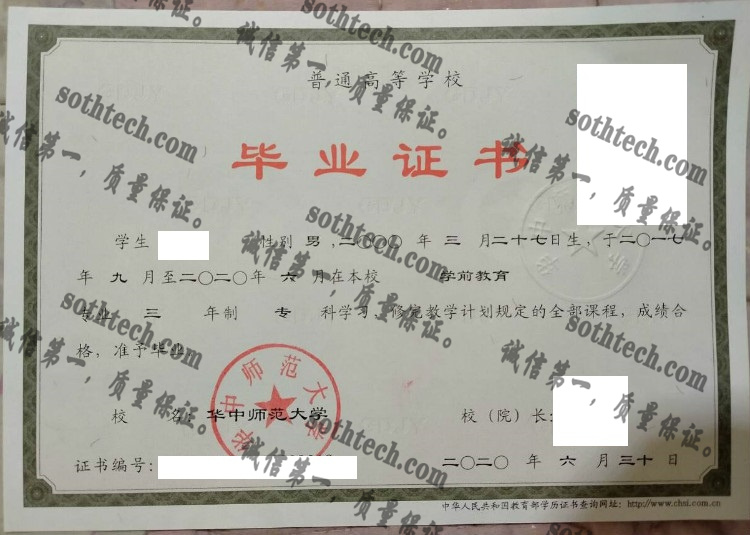 普通高等学校
毕业证书
学生 性别 男,二〇〇〇年 三 月二十七日生,于二〇一七
年 九 月至二〇二〇年 六 月在本校 学前教育
专业 三 年制 专 科学习,修完教学计划规定的全部课程,成绩合
格,准予毕业
校 名 华中师范大学
校(院)长:
证书编号:
二〇二〇 年 六 月 三十 日
中华人民共和国教育部学历证书查询网址:http://www.chsi.com.cn
华中师范大学
sothtech.com
诚信第一,质量保证。
sothtech.com
诚信第一,质量保证。
sothtech.com
诚信第一,质量保证。
sothtech.com
诚信第一,质量保证。
sothtech.com
诚信第一,质量保证。
sothtech.com
诚信第一,质量保证。
sothtech.com
诚信第一,质量保证。
sothtech.com
诚信第一,质量保证。